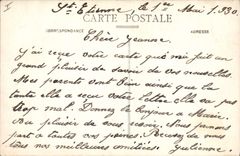 St Etienne, le 1er Mai 1930
CARTE POSTALE
CORRESPONDANCE
ADRESSE
Chère Jeanne
J'ai reçu votre carte qui m'a fait un
grand plaisir de savoir de vos nouvelles
Mes parents vont bien tandis que la
tante elle a reçu votre lettre elle va pas
trop mal. Donnez le bonjour à Marie
au plaisir de vous Nous prenons
part à toutes vos peines. Recevez de nous
tous nos meilleures amitiées Julienne